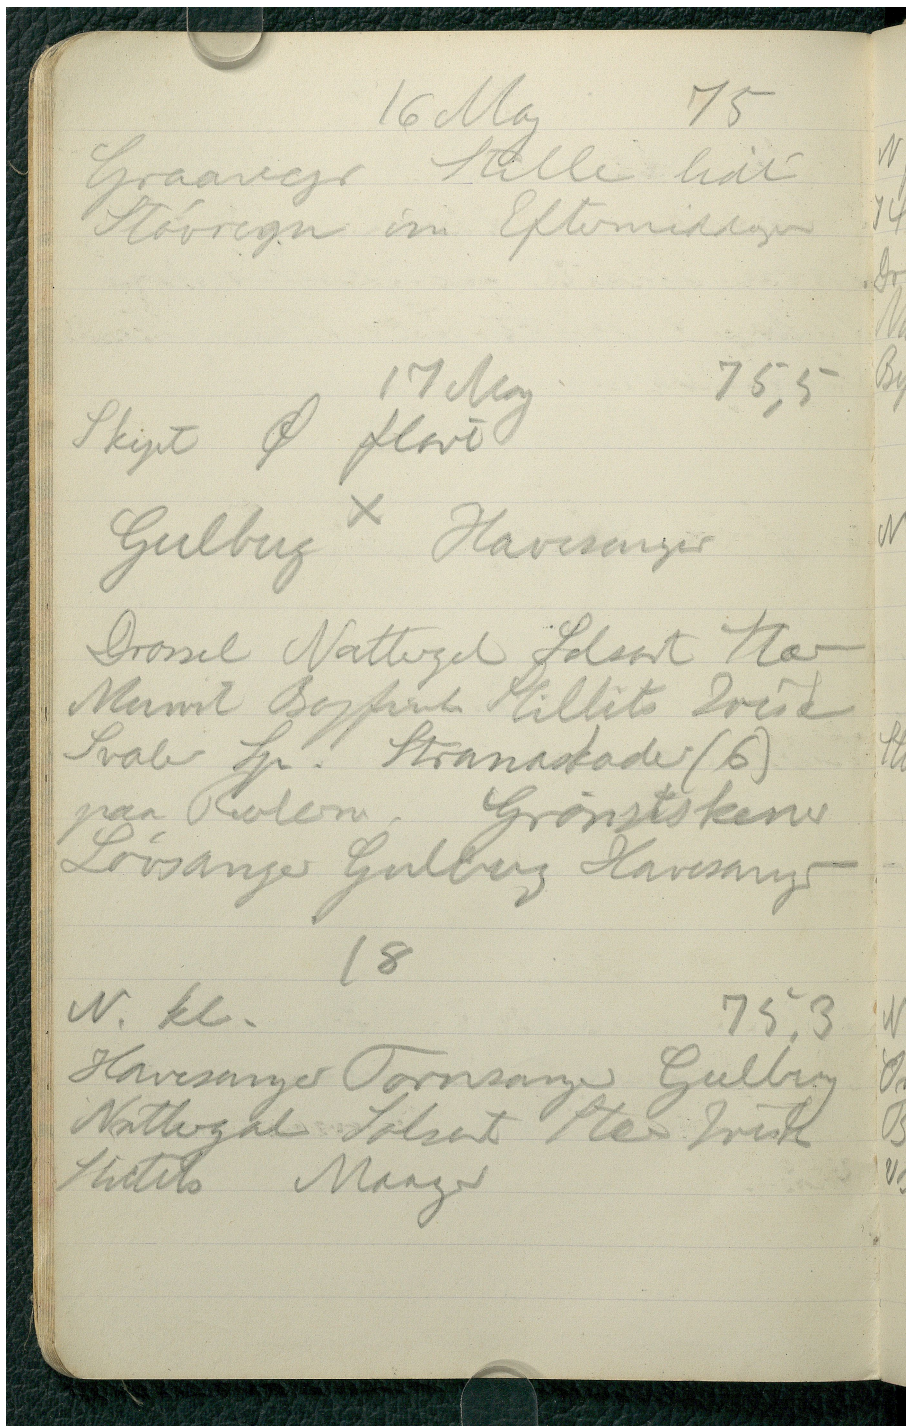 16 May 75
Graavejr Stille lidt
Støvregn om Eftermiddagen
17 May 75,5
Skyet Ø flovt
Gulbug × Havesanger
Drossel Nattergal Solsort Stær
Munk Bogfink Stillits Irisk
Svaler Sp. Strandskader (6)
paa Revlerne. Grønsiskener
Løvsanger Gulbug Havesanger
18
N. kl. 75,3
Havesanger Tornsanger Gulbug
Nattergal Solsort Stær Irisk
Stillits Maager